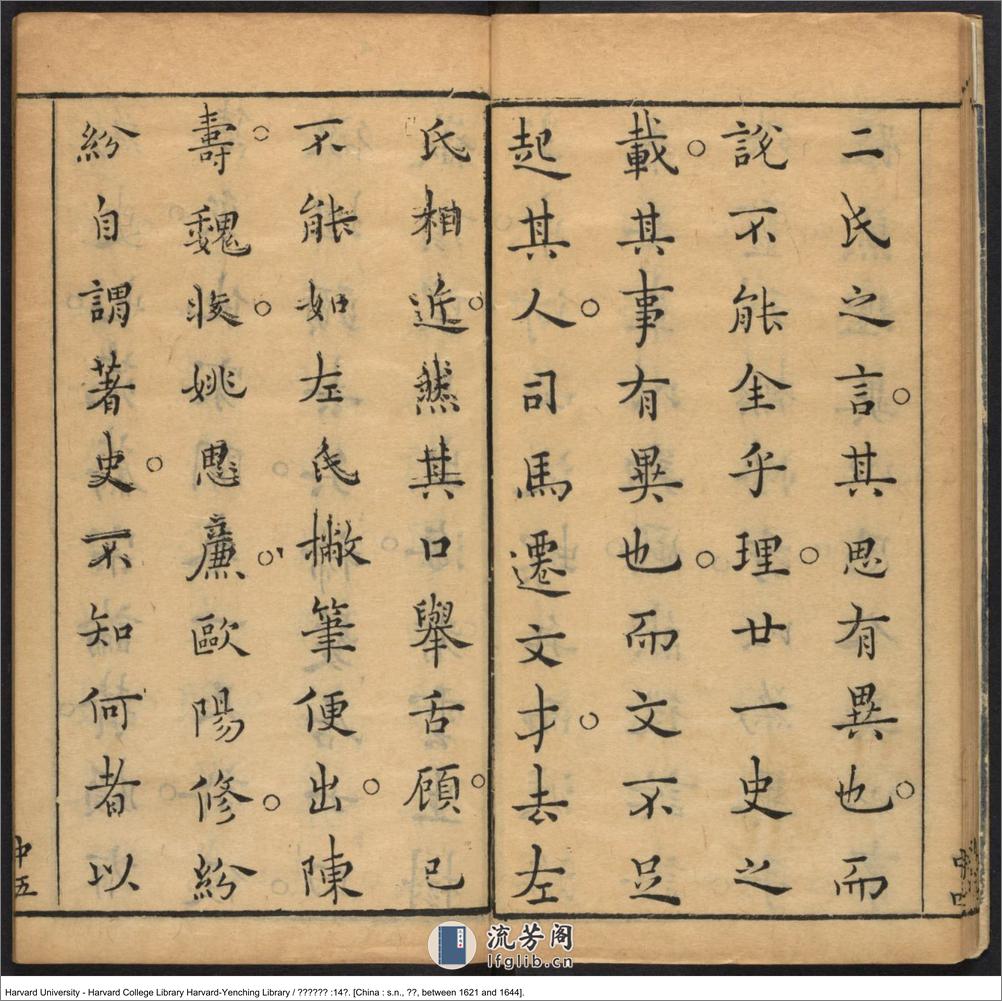 二氏之言其思有異也而
說不能全乎理廿一史之
載其事有異也而文不足
起其人司馬遷文才去左
氏相近然其口舉舌顧已
不能如左氏㩢筆便出陳
壽魏收姚思廉歐陽修紛
紛自謂著史不知何者以
中五
流芳阁
lfglib.cn
Harvard University - Harvard College Library Harvard-Yenching Library / ?????? :14?. [China : s.n., ??, between 1621 and 1644].